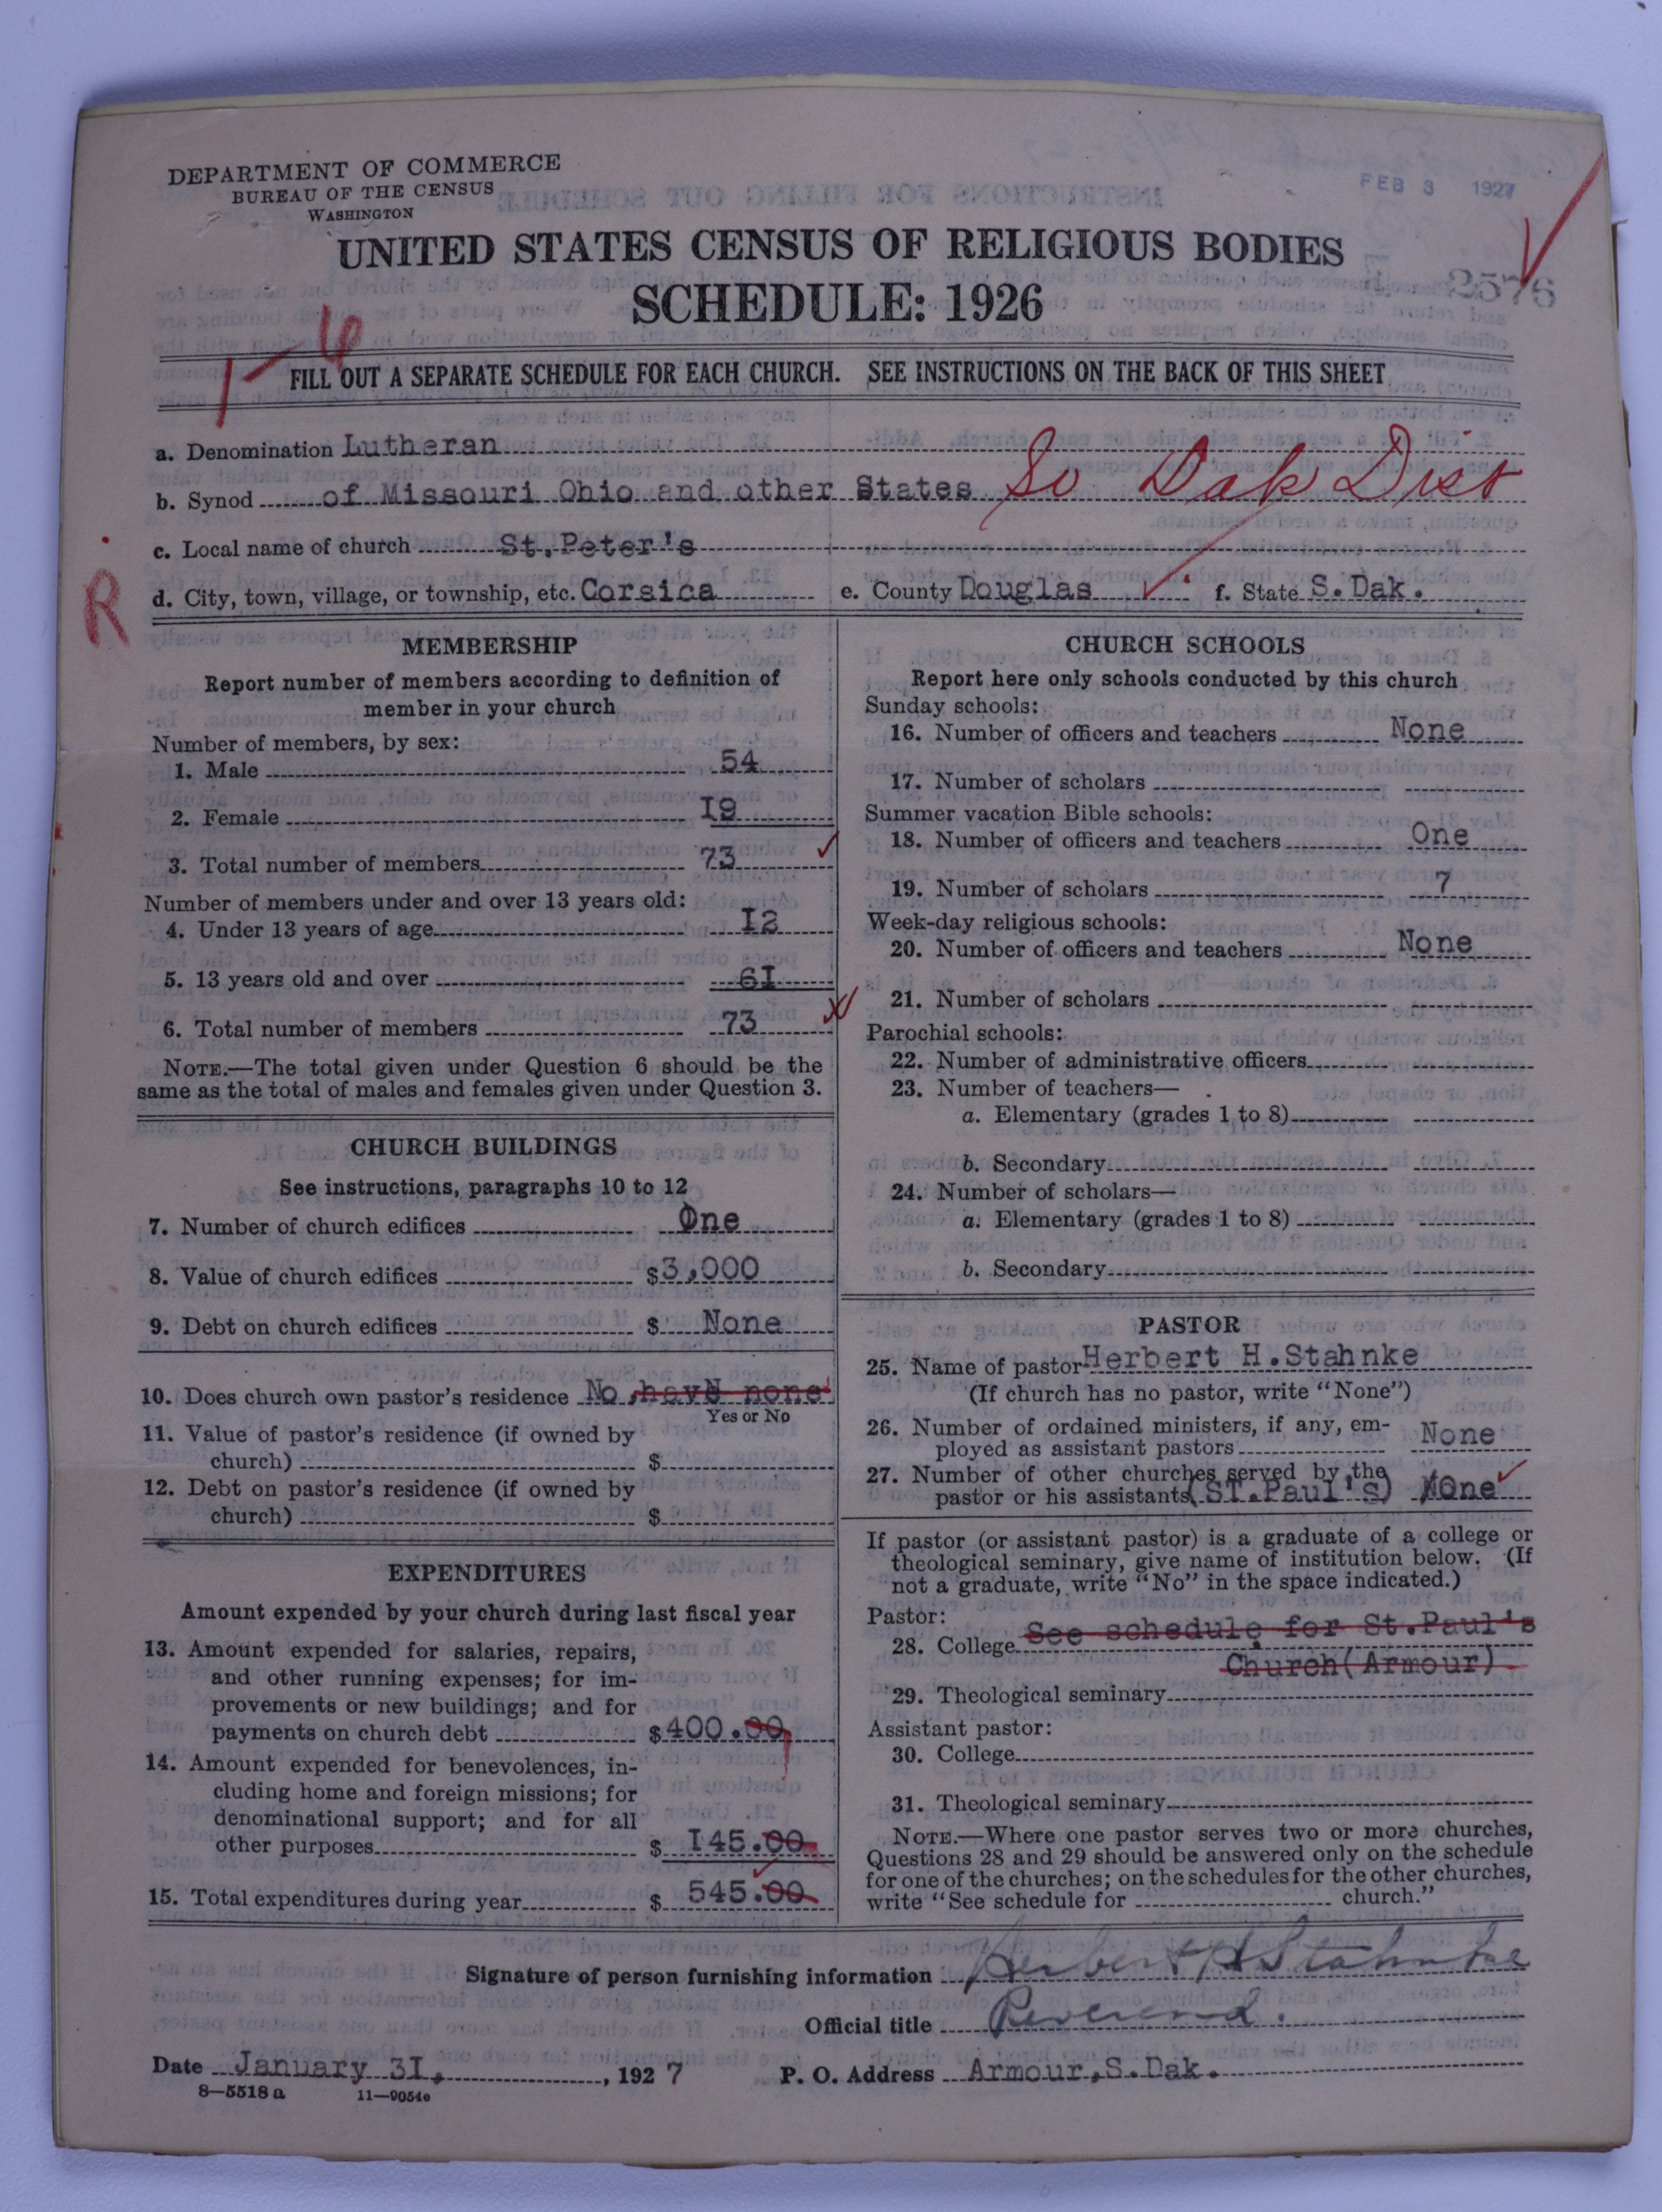 DEPARTMENT OF COMMERCE
BUREAU OF THE CENSUS
WASHINGTON
FEB 3 1927
UNITED STATES CENSUS OF RELIGIOUS BODIES
SCHEDULE: 1926
2576
1-6
FILL OUT A SEPARATE SCHEDULE FOR EACH CHURCH. SEE INSTRUCTIONS ON THE BACK OF THIS SHEET
a. Denomination Lutheran
b. Synod of Missouri Ohio and other States So Dak Dist
c. Local name of church St.Peter's
R
d. City, town, village, or township, etc. Corsica e. County Douglas f. State S.Dak.
MEMBERSHIP
Report number of members according to definition of
member in your church
Number of members, by sex:
1. Male 54
2. Female I9
3. Total number of members 73
Number of members under and over 13 years old:
4. Under 13 years of age I2
5. 13 years old and over 6I
6. Total number of members 73
NOTE.—The total given under Question 6 should be the
same as the total of males and females given under Question 3.
CHURCH BUILDINGS
See instructions, paragraphs 10 to 12
7. Number of church edifices One
8. Value of church edifices $3,000
9. Debt on church edifices $ None
10. Does church own pastor's residence No,have none
Yes or No
11. Value of pastor's residence (if owned by
church) $
12. Debt on pastor's residence (if owned by
church) $
EXPENDITURES
Amount expended by your church during last fiscal year
13. Amount expended for salaries, repairs,
and other running expenses; for im-
provements or new buildings; and for
payments on church debt $400.00
14. Amount expended for benevolences, in-
cluding home and foreign missions; for
denominational support; and for all
other purposes $ I45.00
15. Total expenditures during year $ 545.00
CHURCH SCHOOLS
Report here only schools conducted by this church
Sunday schools:
16. Number of officers and teachers None
17. Number of scholars
Summer vacation Bible schools:
18. Number of officers and teachers One
19. Number of scholars 7
Week-day religious schools:
20. Number of officers and teachers None
21. Number of scholars
Parochial schools:
22. Number of administrative officers
23. Number of teachers—
a. Elementary (grades 1 to 8)
b. Secondary
24. Number of scholars—
a. Elementary (grades 1 to 8)
b. Secondary
PASTOR
25. Name of pastor Herbert H.Stahnke
(If church has no pastor, write "None")
26. Number of ordained ministers, if any, em-
ployed as assistant pastors None
27. Number of other churches served by the
pastor or his assistants (ST.Paul's) One
If pastor (or assistant pastor) is a graduate of a college or
theological seminary, give name of institution below. (If
not a graduate, write "No" in the space indicated.)
Pastor:
28. College See schedule for St.Paul's
Church(Armour)
29. Theological seminary
Assistant pastor:
30. College
31. Theological seminary
NOTE.—Where one pastor serves two or more churches,
Questions 28 and 29 should be answered only on the schedule
for one of the churches; on the schedules for the other churches,
write "See schedule for church."
Signature of person furnishing information Herbert H Stahnke
Official title Reverend.
Date January 3I, , 1927 P. O. Address Armour,S.Dak.
8—5518 a 11—9054a